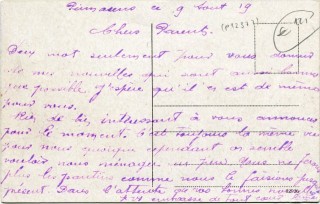 Pirmasens ce 9 Aout 19
Chers Parents,
Deux mot seulement pour vous donner
de nos nouvelles qui sont aussi bonnes
que possible. J'espère qu'il en est de même
pour vous.
Rien de bien intéressant à vous annoncer
pour le moment. C'est toujours la même vie
pour nous quoique cependant on semble
vouloir nous ménager un peu. Nous ne ferons
plus les parties comme nous le faisions
présent. Dans l'attente de vos bonnes nouvelles
je vous embrasse de tout cœur